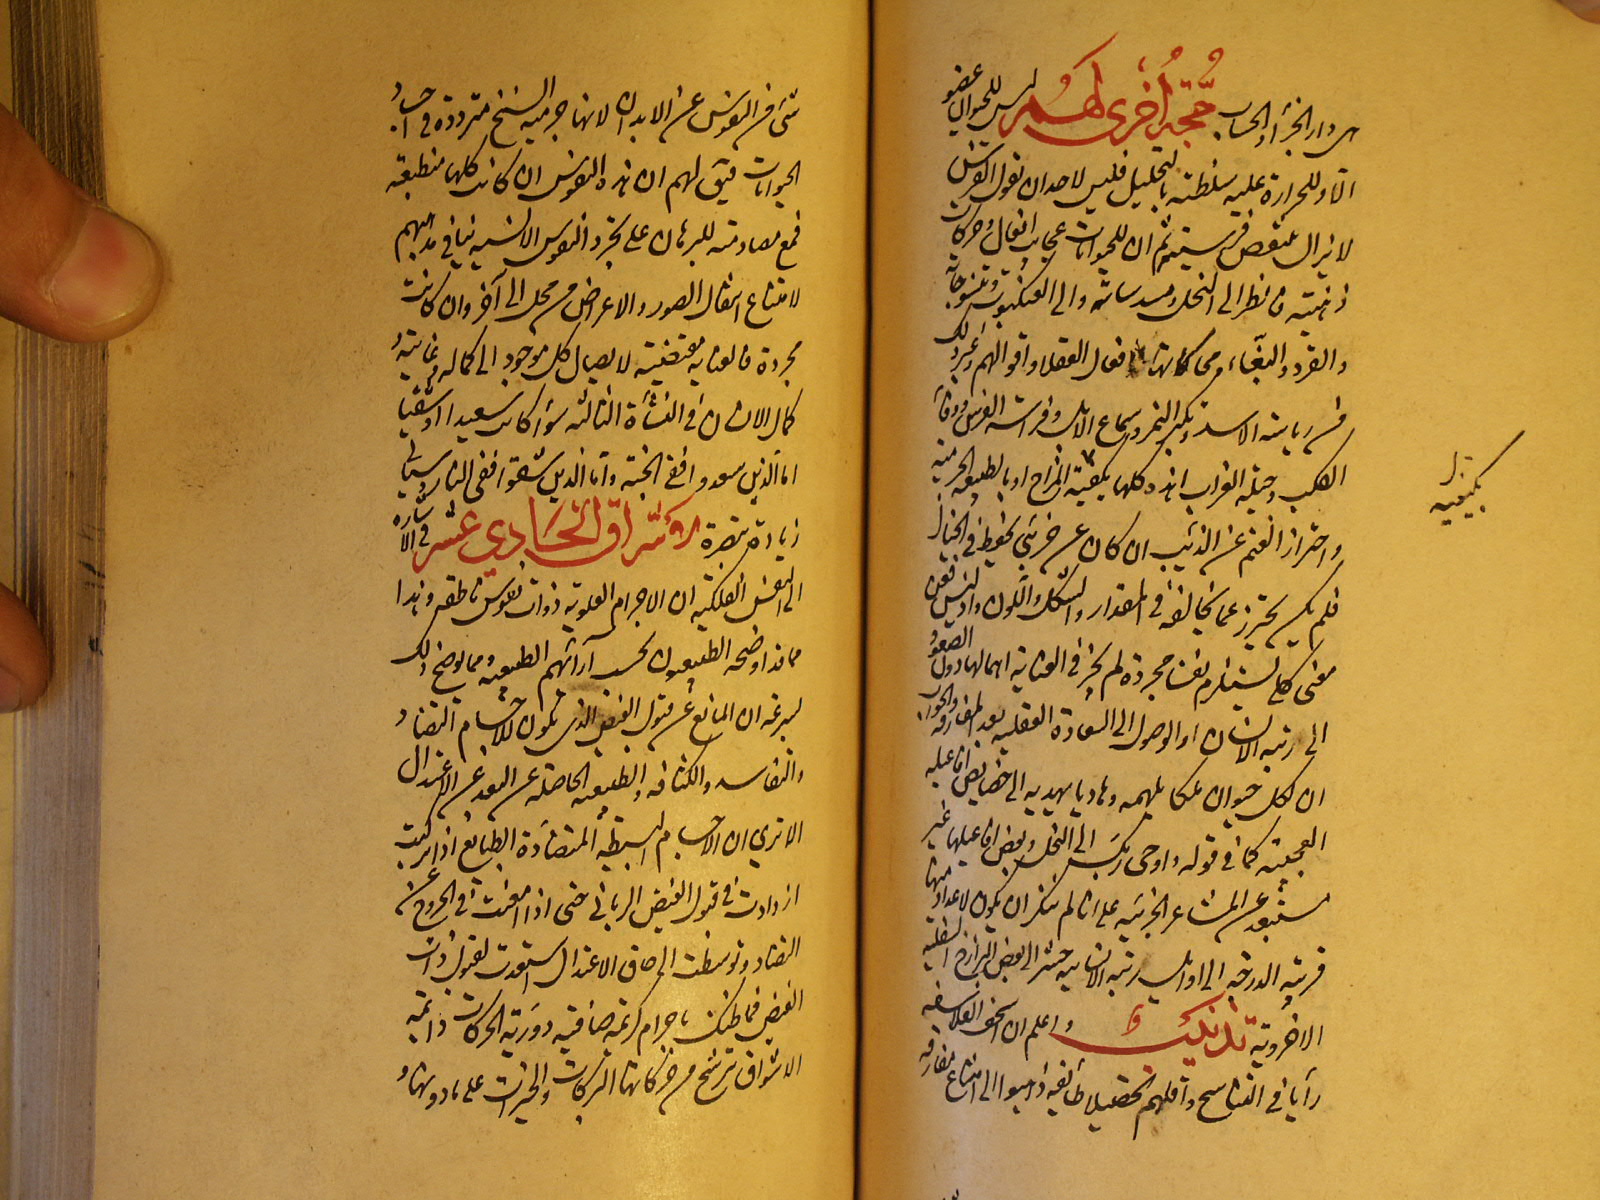 هي دار الجزاء والحساب حجة أخرى لهم ليس للحيوان عضو
الا وللحرارة عليه سلطنة بالتحليل فليس لاحد ان يقول الفرس
لا يزال ينتقص فرسيته ثم ان للحيوانات عجايب افعال وحركات
ذهنية فانظر الى النحل ومسدساته والى العنكبوت ومنسوجاته
والقرد والببغاء ومحاكاتهما افعال العقلا واقوالهم وغير ذلك
من رياسة الاسد وتكبر النمر وسماع الابل وفراسة الفرس ووفاء
الكلب وحيلة الغراب اهذه كلها بكيفية المزاج او بالطبيعة الجرمية
واحتراز الغنم عن الذئب ان كان عن جزئي محفوظ في الخيال
فلم يكن يحترز عما يخالفه في المقدار والشكل واللون وان كان عن
معنى كلي يستلزم نفسا مجردة لم يجز في العناية اهمالها دون الصعود
الى رتبة الانسان او الوصول الى السعادة العقلية بعد المفارقة والجواب
ان لكل حيوان ملكا يلهمه وهاديا يهديه الى خصايص افاعيله
العجيبة كما في قوله واوحى ربك الى النحل وبعض افاعيلها غير
مستبعد عن المشاعر الجزئية على انا لم ننكر ان يكون لاعداد منها
قريبة الدرجة الى اوايل رتبة الانسانية حشر الى بعض البرازخ السفلية
الاخروية تذنيب واعلم ان اسخف الفلاسفة
رايا في التناسخ واقلهم تحصيلا طائفة ذهبوا الى امتناع مفارقة
بكيفية
شئ من النفوس عن الابدان لانها جرمية السنخ مترددة في اجساد
الحيوانات فيق لهم ان هذه النفوس ان كانت كلها منطبعة
فمع مصادمته للبرهان على تجرد النفوس الانسية ينافي مذهبهم
لامتناع انتقال الصور والاعراض من محل الى آخر وان كانت
مجردة فالعناية مقتضية لايصال كل موجود الى كماله وغايته و
كمال الانسان في النشأة الثالثة سواء كانت سعيدا او شقيا
اما الذين سعدوا ففي الجنة واما الذين شقوا ففي النار وسياتي
زيادة تبصرة الاشراق الحادي عشر في الاشارة
الى النفس الفلكية ان الاجرام العلوية ذوات نفوس ناطقة وهذا
مما قد اوضحه الطبيعيون بحسب آرائهم الطبيعية ومما يوضح ذلك
بسرعة ان المانع عن قبول الفيض الذي يكون للاجسام التضاد و
التفاسد والكثافة والطبيعة الحاصلة عن البعد عن الاعتدال
الا ترى ان الاجسام البسيطة المتضادة الطبايع اذا تركبت
ازدادت في قبول الفيض الرباني حتى اذا امعنت في الخروج عن
التضاد وتوسطت الى حاق الاعتدال استعدت لقبول ذات
الفيض فما ظنك باجرام كريمة صافية دورية الحركات دائمة
الاشواق ترشح من حركاتها البركات والخيرات على ما دونها و